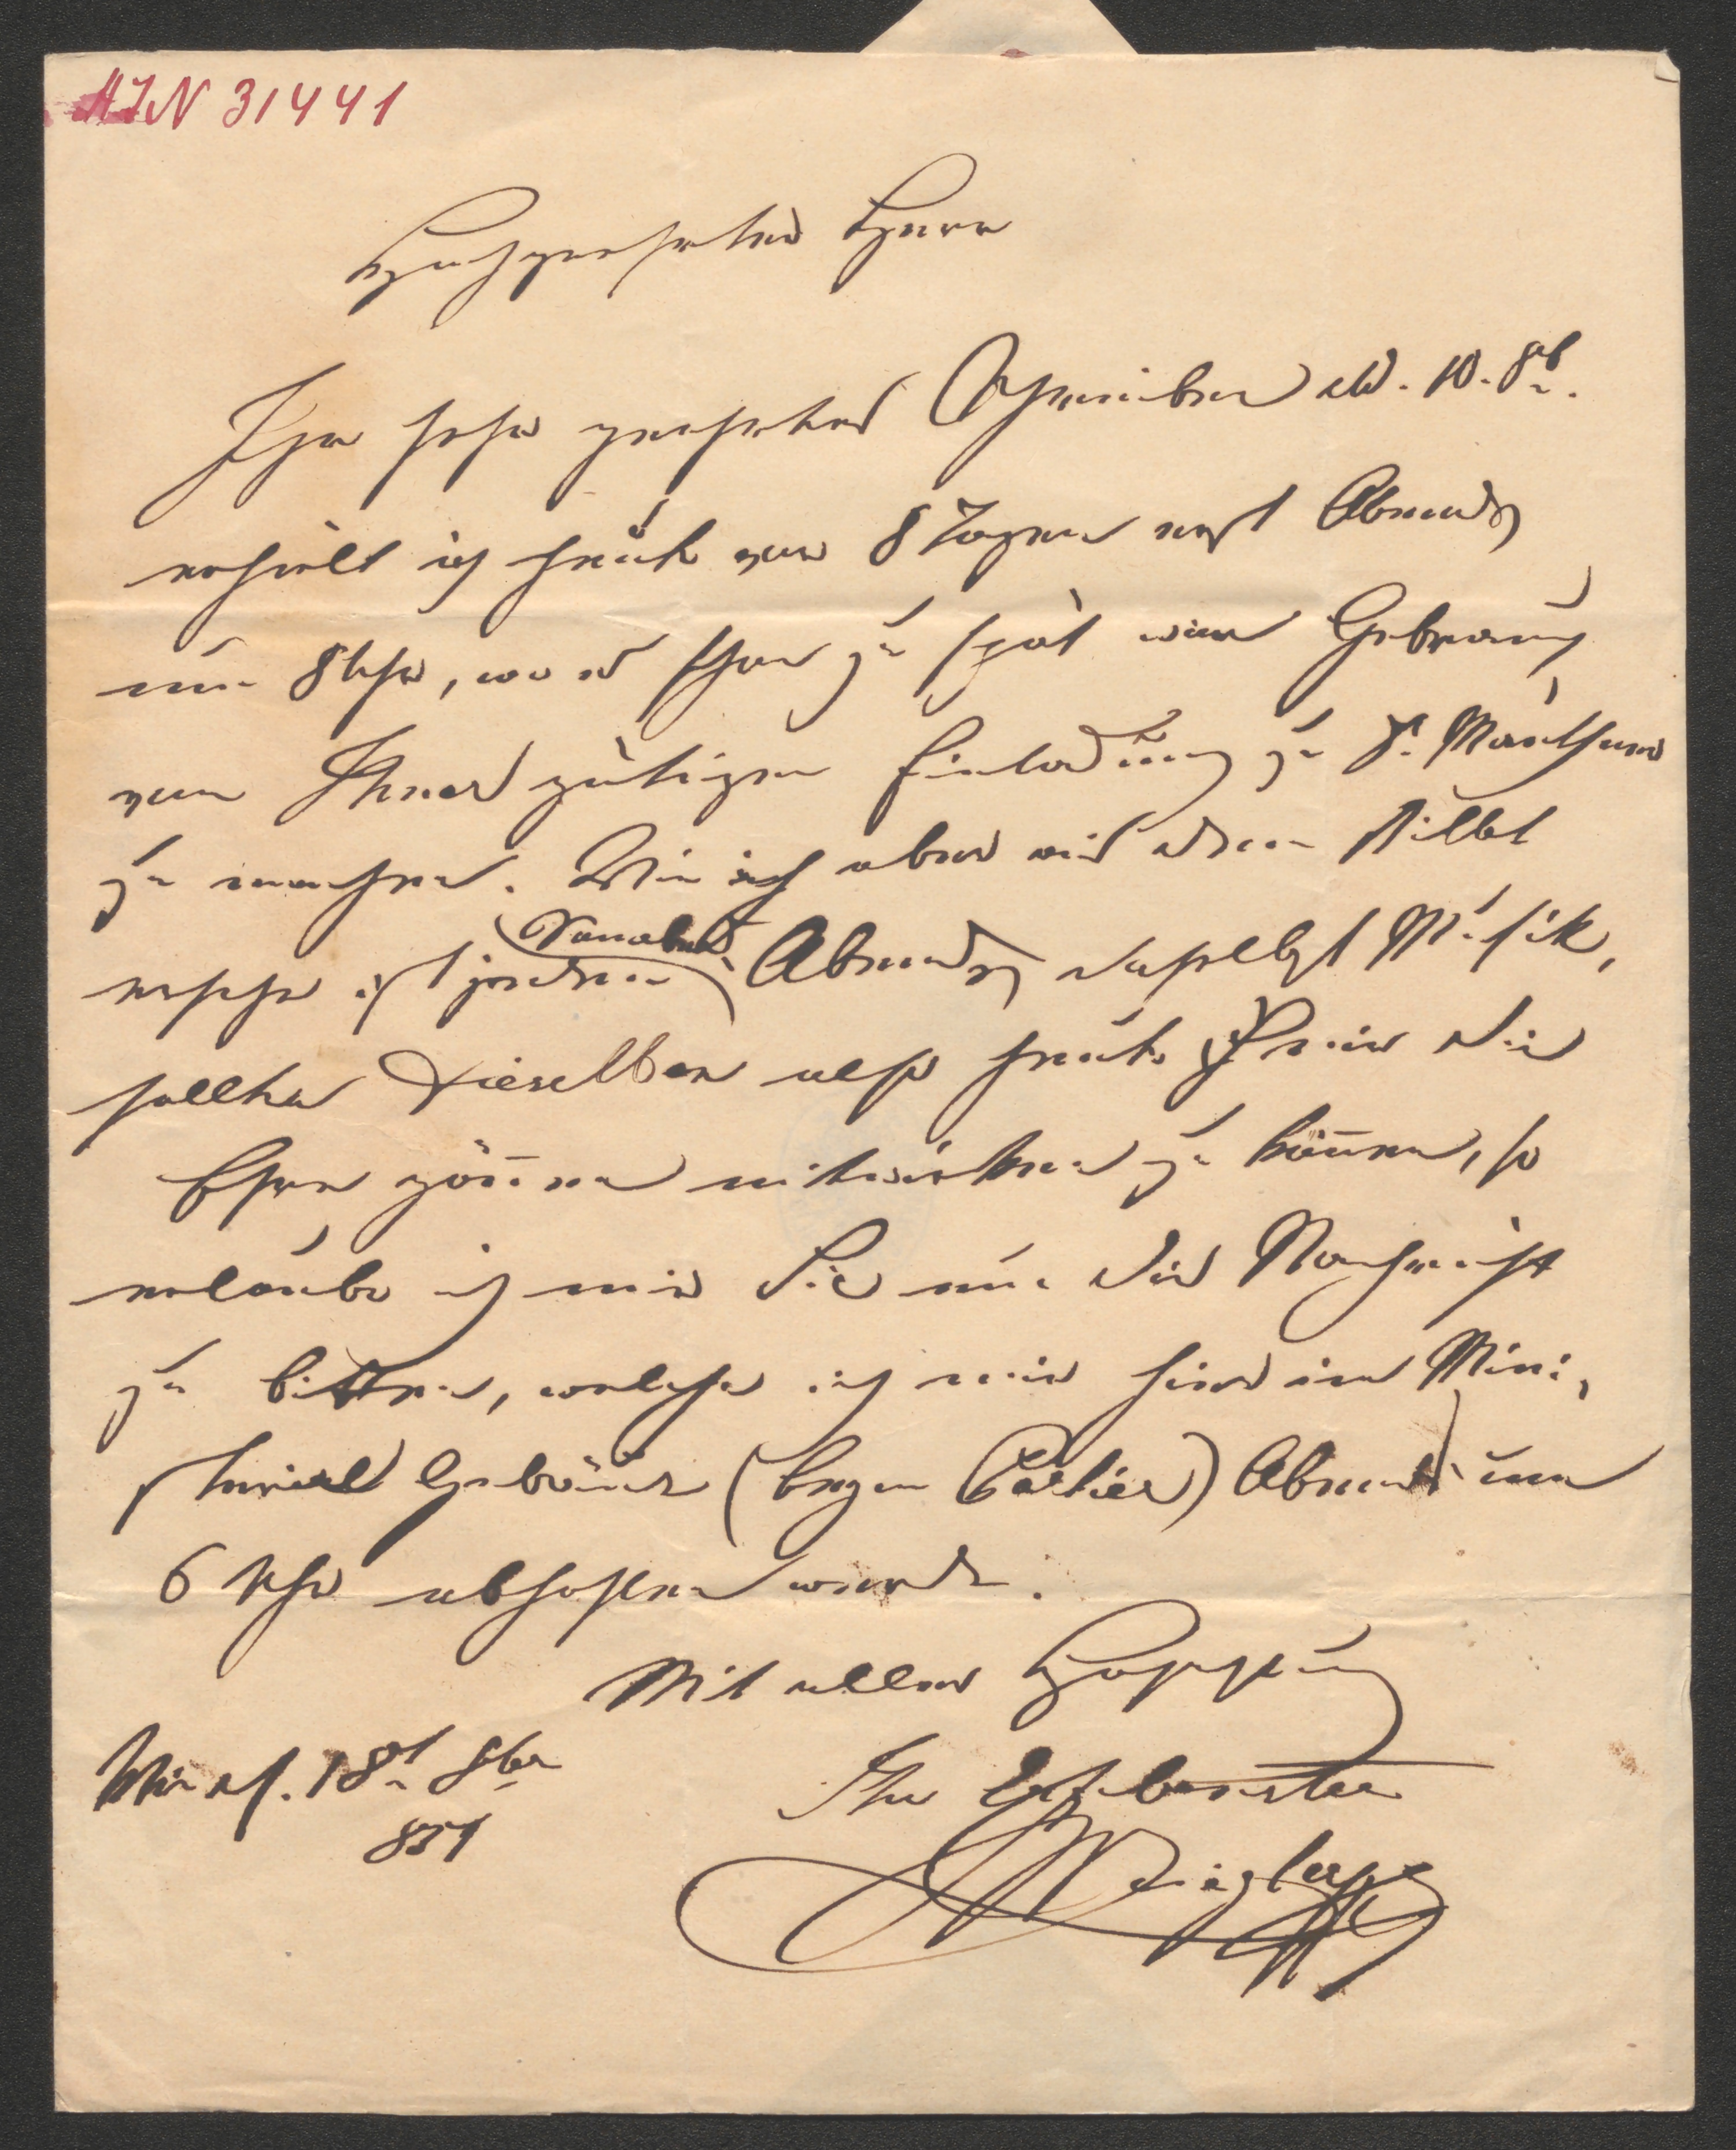 HIN 31441
Hochgeehrter Herr
Ihr sehr geehrtes Schreiben dd. 10. 8b.
erhielt ich heute vor 8 Tagen erst Abends
um 8 Uhr, wo es schon zu spät war Gebrauch
von Ihrer gütigen Einladung zu H.
zu machen. Wie ich aber aus dem Billet
ersehe ist jeden Sonabend Abends daselbst Musik,
sollten Dieselben also heute mir die
Ehre gönnen mitwirken zu können, so
erlaube ich mir Sie um die Nachricht
zu bitten, welche ich mir hier im Mini,
sterial Gebäude (beym Portier) Abends um
6 Uhr abholen werde.
Mit aller Hochachtung
Ihr Ergebenster
Wien d. 18t 8ber
851